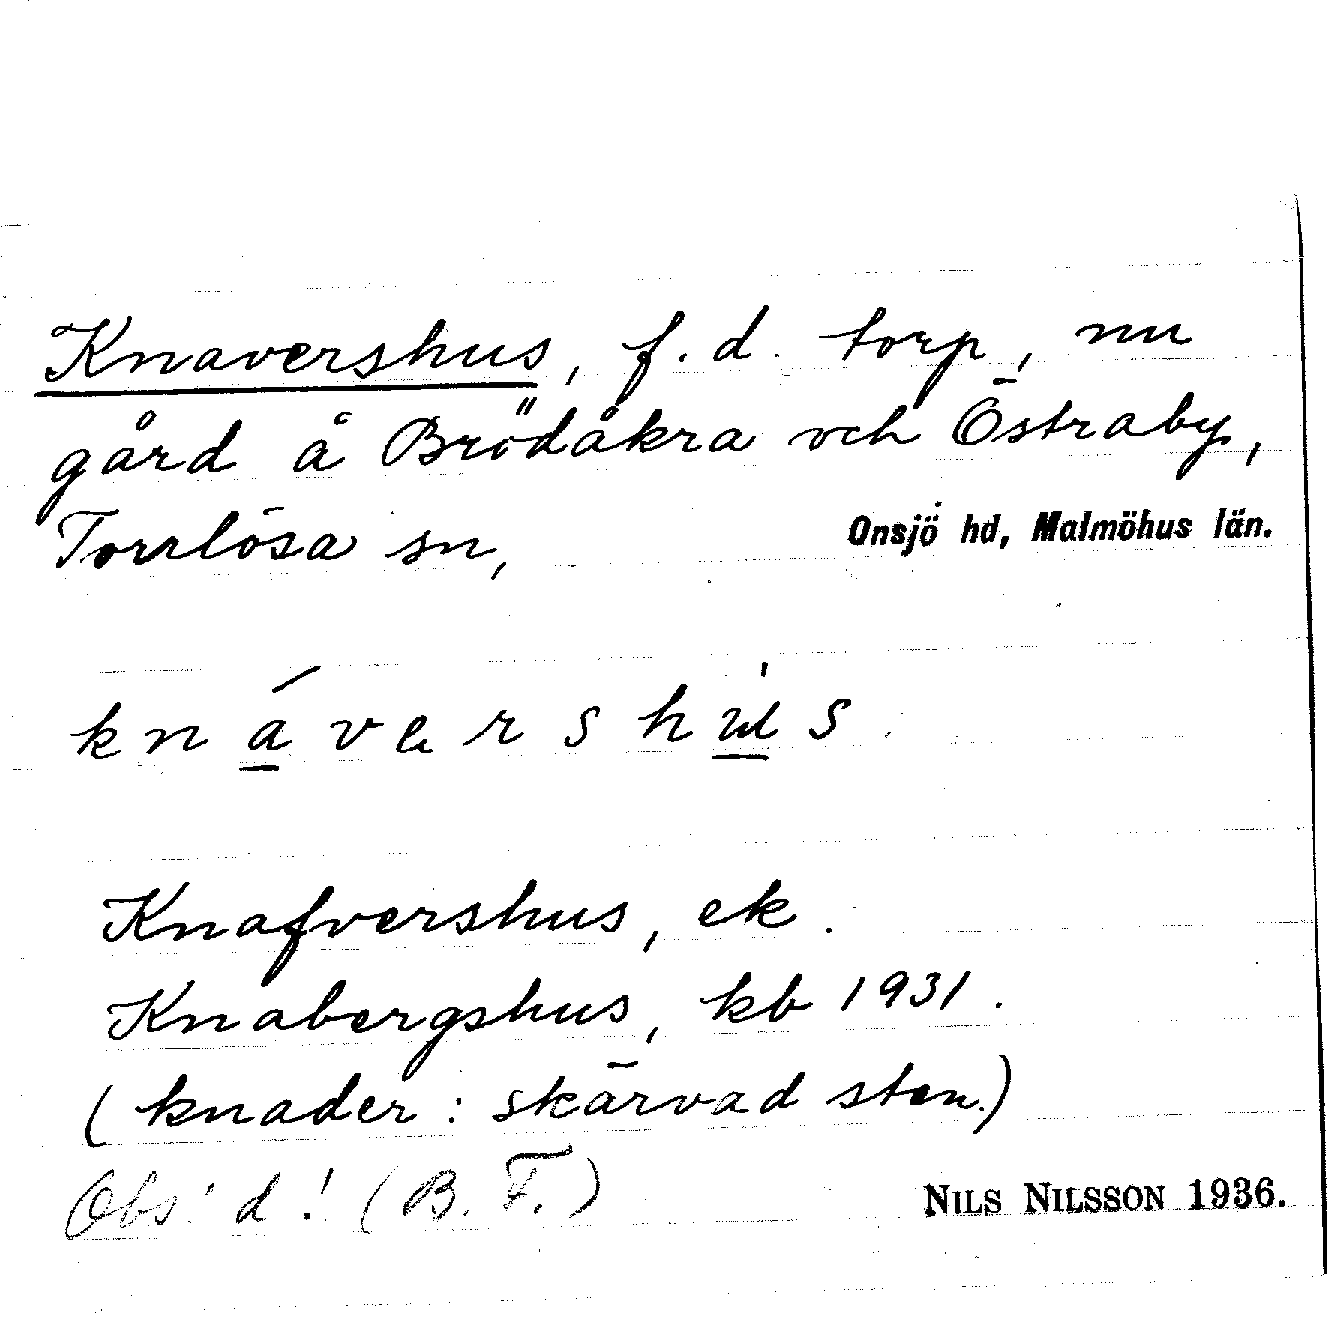 Knavershus, f.d. torp, nu
gård å Brödåkra och Östraby,
Torrlösa sn, Onsjö hd, Malmöhus län.
knávershùs
Knafvershus, ek.
Knabergshus, kb 1931.
(knader : skärvad sten.)
Obs! d! (B. F.) NILS NILSSON 1936.